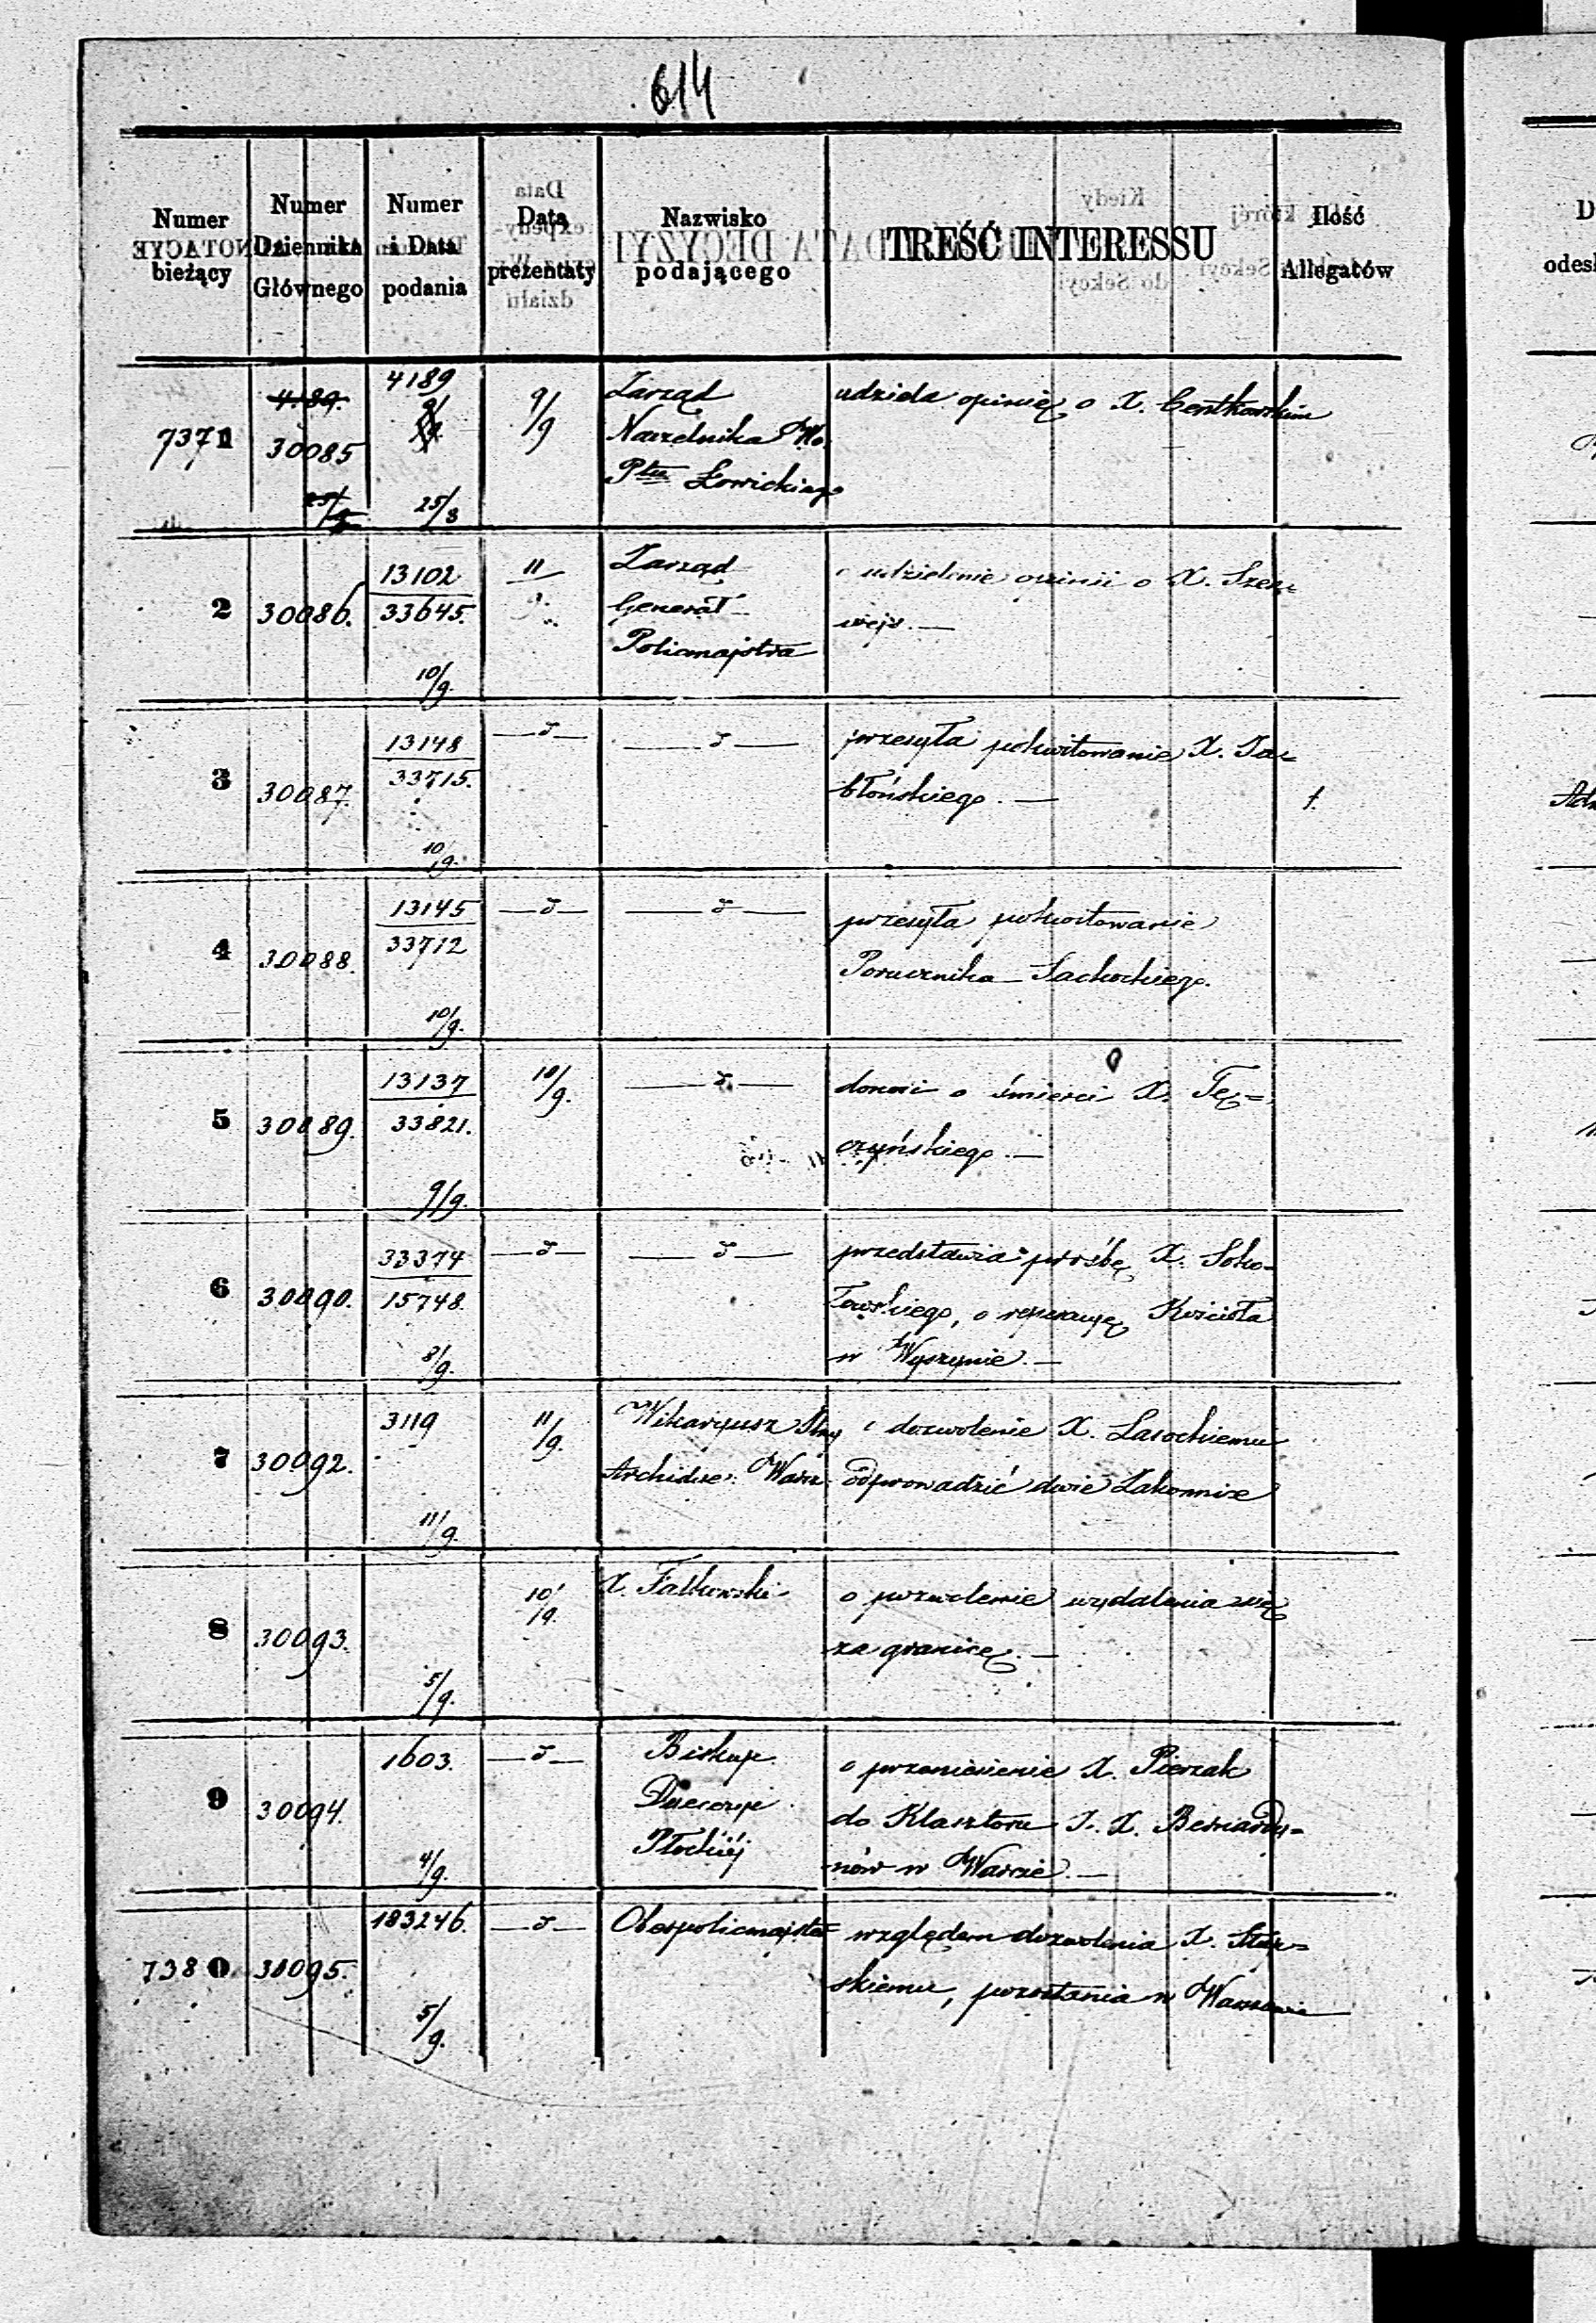 614
Numer bieżący
Numer Dziennika Głównego
Numer i Data podania
Data prezentaty
Nazwisko podającego
TREŚĆ INTERESSU
Ilość Allegatów
7371
4189.
30085
4189
25/8
9/9
Zarząd
Naczelnika Wo.
Ptu Łowickiego
udziela opinię o X. Centkowskim
2
30086.
13102
33645.
10/9.
11
Zarząd
Generał
Policmajstra
o udzielenie opinii o X. Szer=
wejs. —
3
30087.
13148
33715.
10/9.
—d—
—d—
przesyła pokwitowanie X. Ja=
błońskiego. —
1.
4
30088.
13145
33712
10/9.
—d—
—d—
przesyła pokwitowanie
Porucznika Sachockiego.
5
30089.
13137
33821.
9/9.
10/9.
—d—
donosi o śmierci X. Tę=
czyńskiego. —
6
30090.
33374
15748.
8/9.
—d—
—d—
przedstawia prośbę X. Soko=
łowskiego, o reperacyę Kościoła
w Wyszynie. —
7
30092.
3119
11/9.
11/9.
Wikaryusz
Archidie: Warsz.
o dozwolenie X. Lasockiemu
odprowadzić dwie Zakonnice
8
30093.
5/9.
10/9.
X. Falkowski
o pozwolenie wydalenia się
za granicę. —
9
30094.
1603.
4/9.
—d—
Biskup
Dyecezyi
Płockiej
o przeniesienie X. Pierzak
do Klasztoru X. X. Bernardy=
nów w Warcie. —
7380
30095.
183246.
5/9.
—d—
Oberpolicmajster
względem dozwolenia X.
skiemu, pozostania w Warszawie